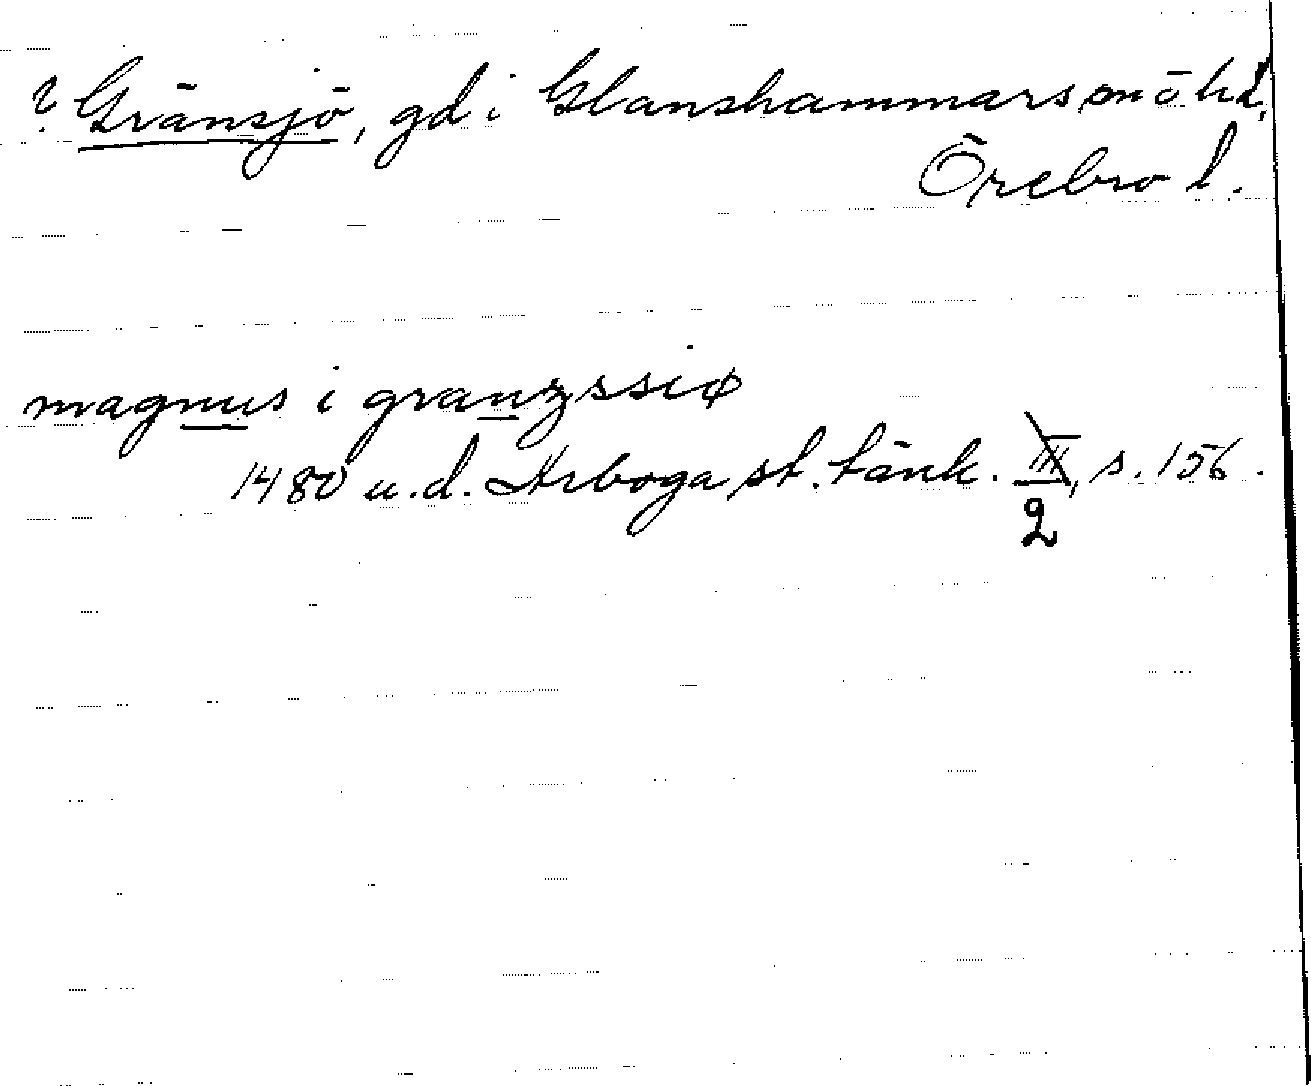 ? Gränsjö, gd i Glanshammars sn o hd,
Örebro l.
magnus i granzssiø
1480 u.d. Arboga st. tänk. III, s. 156.
2